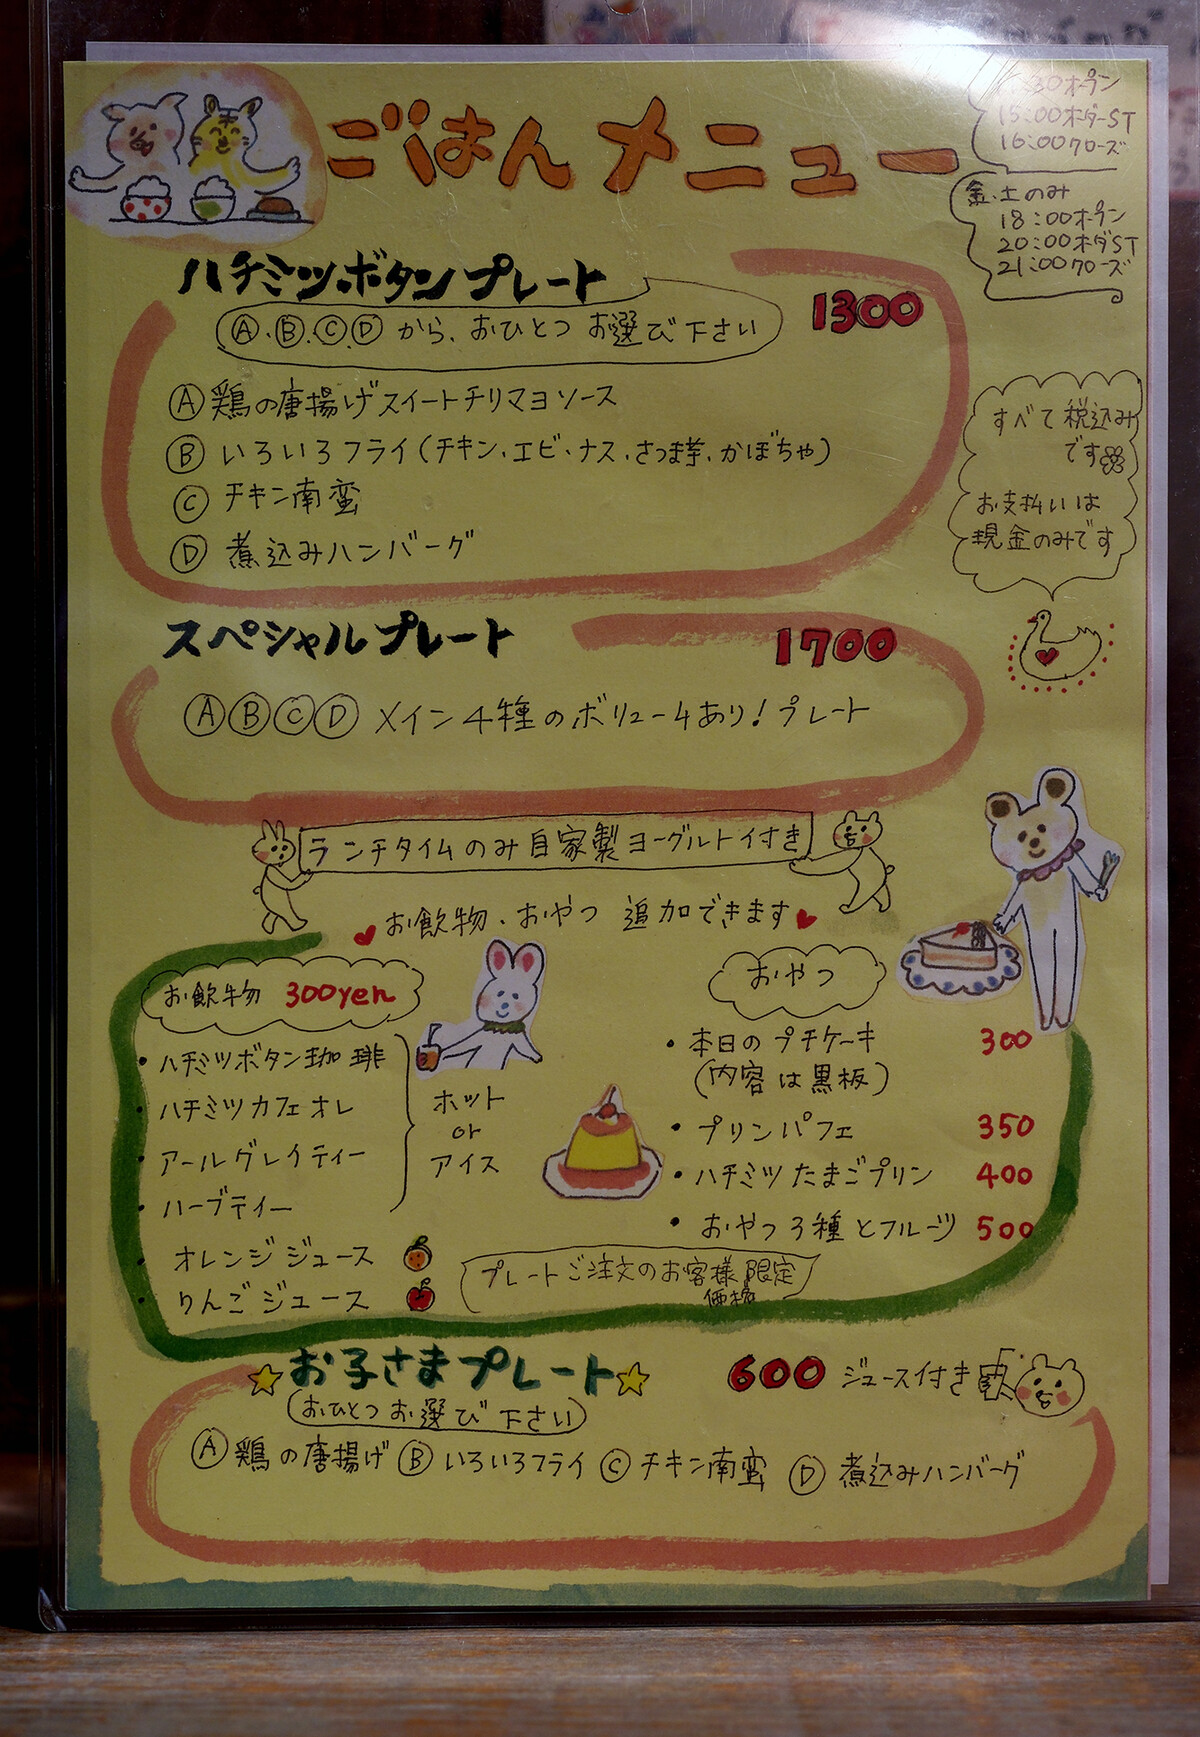 ごはんメニュー
30オープン
15:00オーダーST
16:00クローズ
金.土のみ
18:00オープン
20:00オーダST
21:00クローズ
ハチミツボタンプレート
1300
Ⓐ.Ⓑ.Ⓒ.Ⓓから、おひとつ お選び下さい
Ⓐ鶏の唐揚げスイートチリマヨソース
Ⓑいろいろフライ(チキン、エビ、ナス、さつま芋、かぼちゃ)
Ⓒチキン南蛮
Ⓓ煮込みハンバーグ
すべて税込み
です
お支払いは
現金のみです
スペシャルプレート
1700
ⒶⒷⒸⒹメイン4種のボリュームあり!プレート
ランチタイムのみ自家製ヨーグルト付き
お飲物、おやつ 追加できます
お飲物 300yen
・ハチミツボタン珈琲
・ハチミツカフェオレ
・アールグレイティー
・ハーブティー
ホット
or
アイス
・オレンジジュース
・りんごジュース
おやつ
・本日のプチケーキ 300
(内容は黒板)
・プリンパフェ 350
・ハチミツたまごプリン 400
・おやつ3種とフルーツ 500
プレートご注文のお客様限定
価格
お子さまプレート
600 ジュース付き
(おひとつお選び下さい)
Ⓐ鶏の唐揚げ Ⓑいろいろフライ Ⓒチキン南蛮 Ⓓ煮込みハンバーグ